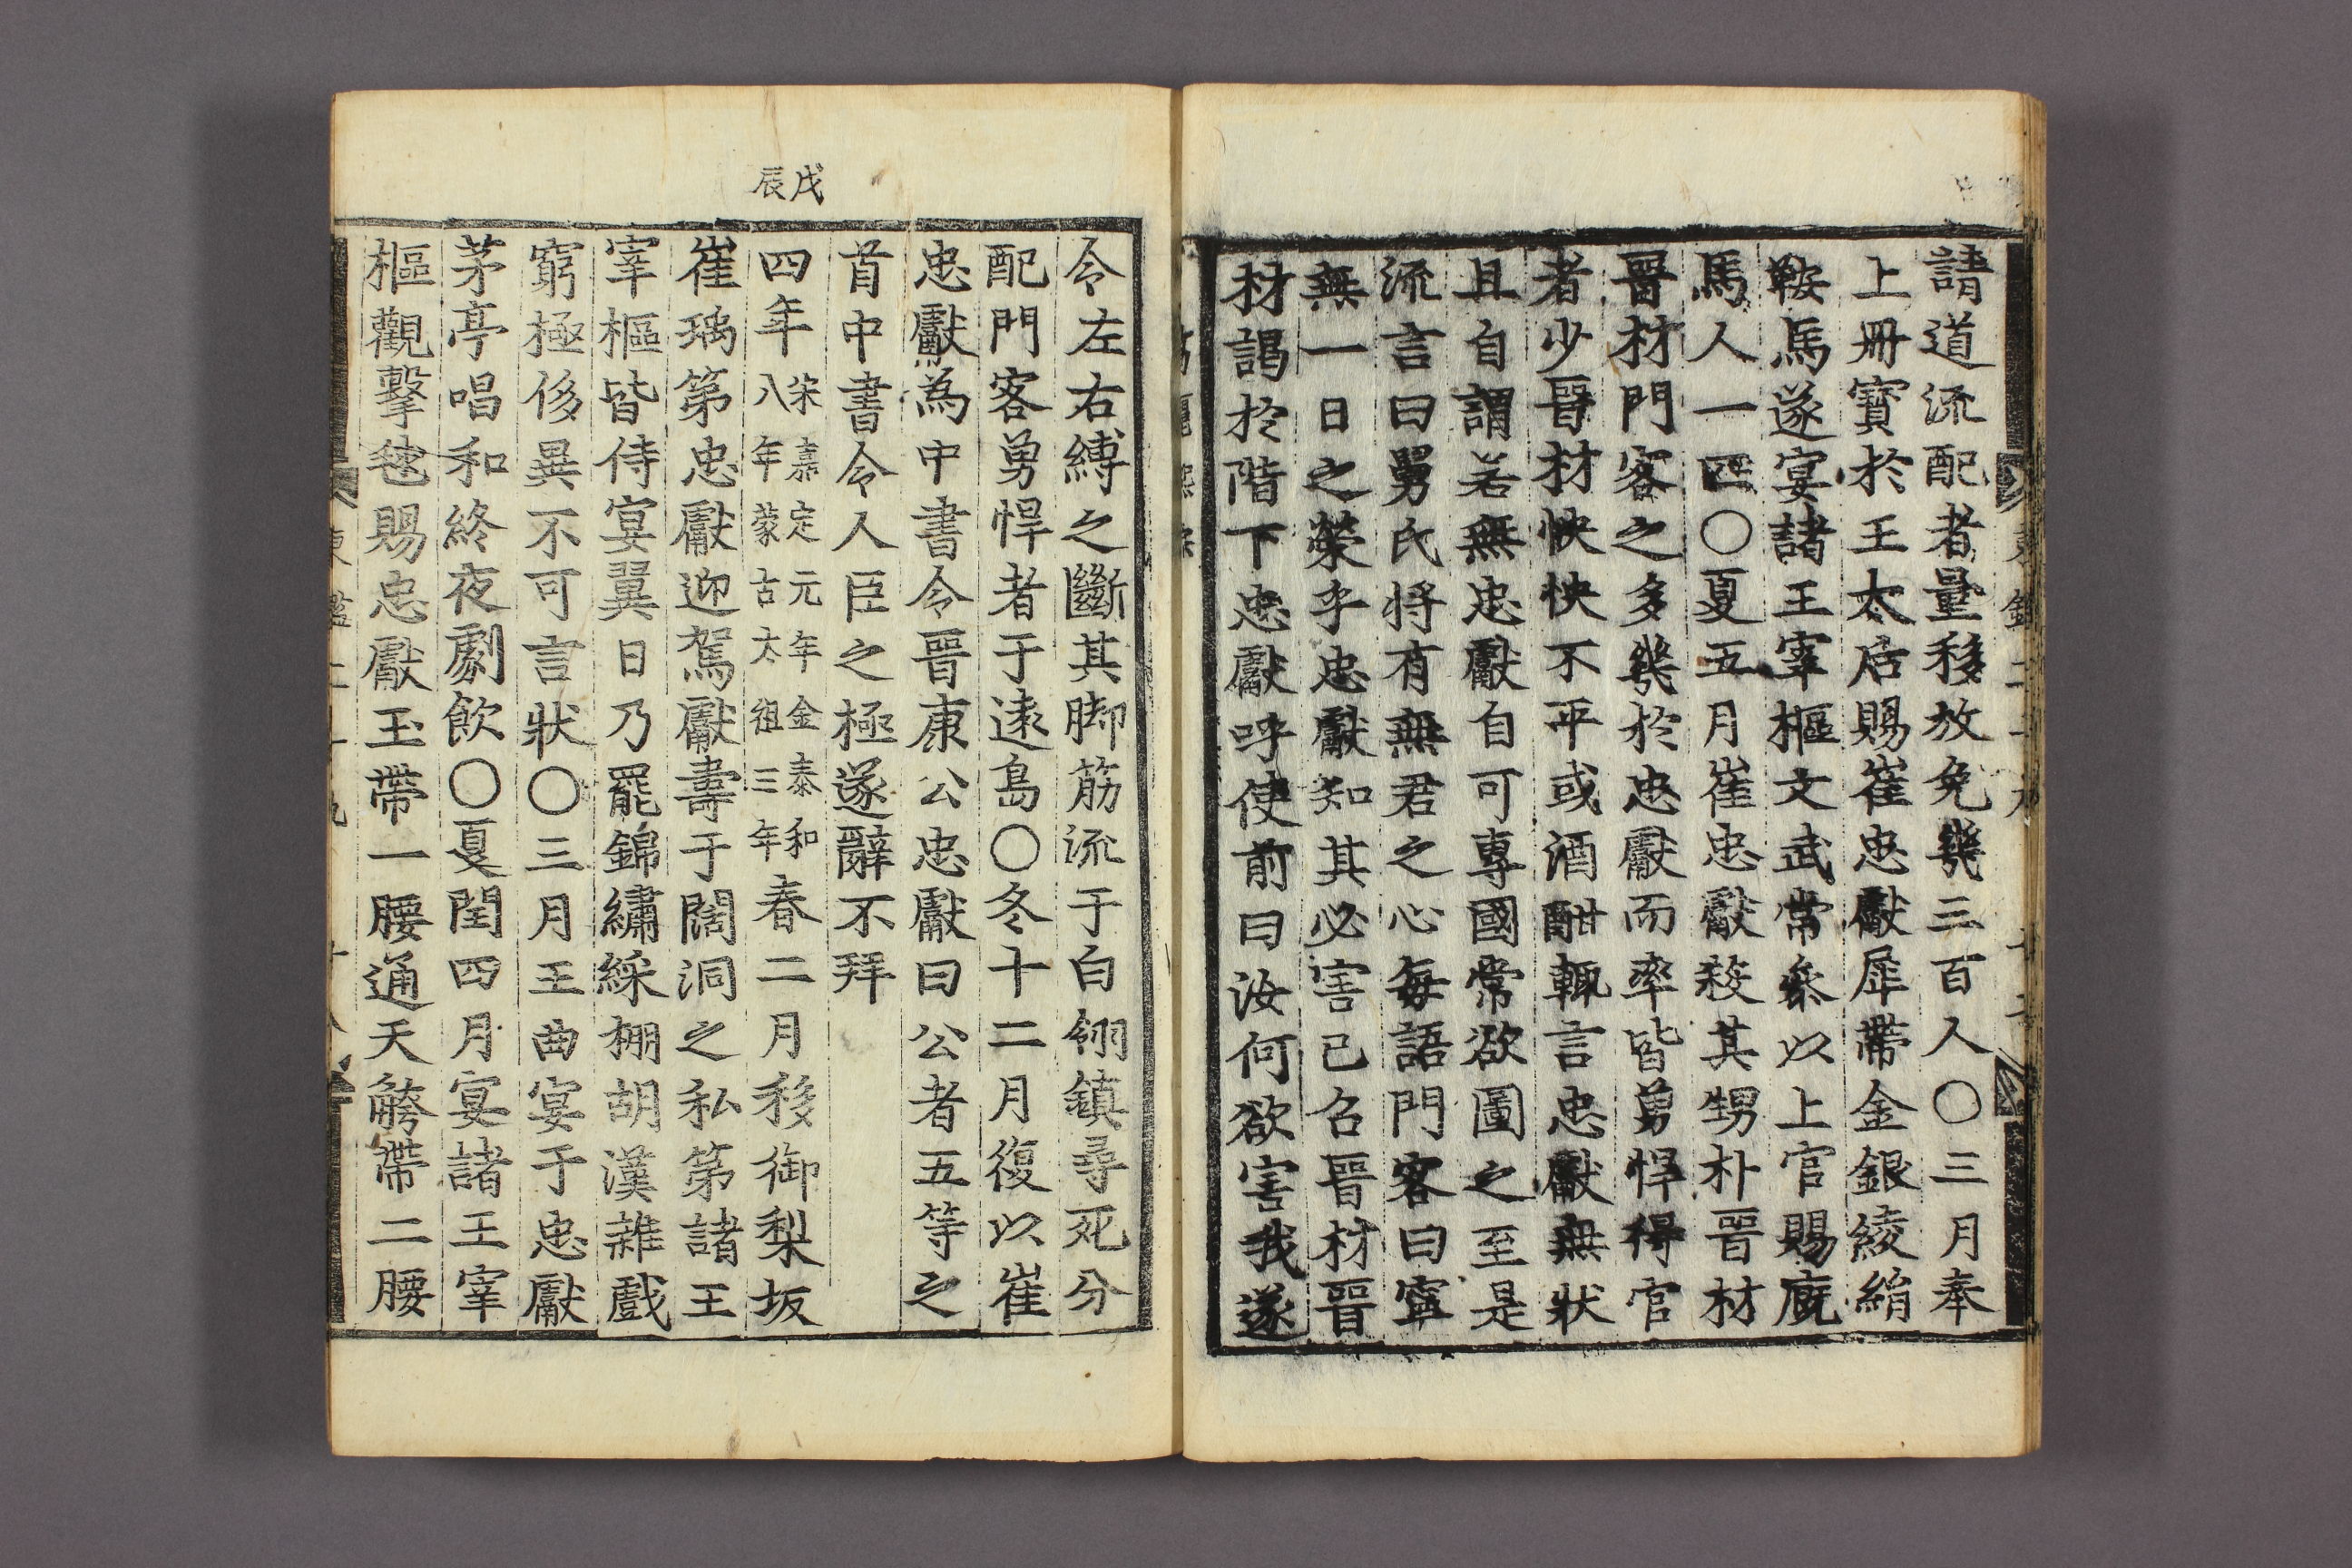 請道流配者量移放免幾三百人〇三月奉
上冊寶於王太后賜崔忠獻犀帶金銀綾絹
鞍馬遂宴諸王宰樞文武常叅以上官賜廐
馬人一匹〇夏五月崔忠獻殺其甥朴晉材
晉材門客之多幾於忠獻而率皆勇悍得官
者少晉材怏怏不平或酒酣輒言忠獻無狀
且自謂若無忠獻自可專國常欲圖之至是
流言曰舅氏將有無君之心每語門客曰寧
無一日之榮乎忠獻知其必害己召晉材晉
材謁於階下忠獻呼使前曰汝何欲害我遂
戊辰
令左右縛之斷其脚筋流于白翎鎮尋死分
配門客勇悍者于遠島〇冬十二月復以崔
忠獻為中書令晉康公忠獻曰公者五等之
首中書令人臣之極遂辭不拜
四年宋嘉定元年金泰和八年蒙古太祖三年春二月移御梨坂
崔瑀第忠獻迎駕獻壽于闊洞之私第諸王
宰樞皆侍宴翼日乃罷錦繡綵棚胡漢雜戲
窮極侈異不可言狀〇三月王曲宴于忠獻
茅亭唱和終夜劇飮〇夏閏四月宴諸王宰
樞觀擊毬賜忠獻玉帶一腰通天䯞帶二腰